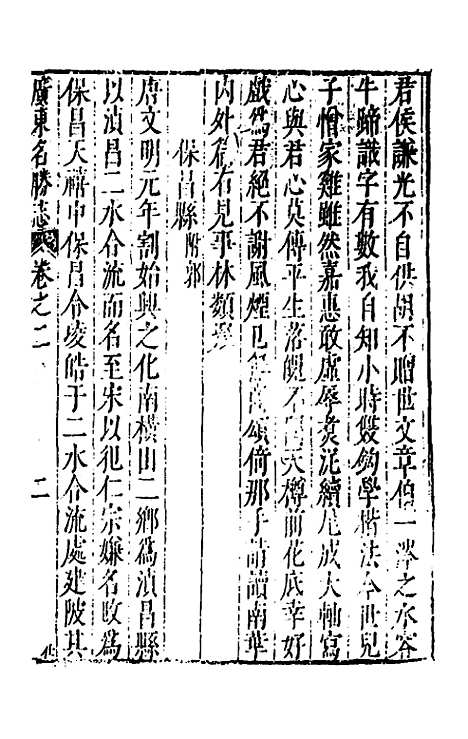 君侯謙光不自供胡不贈世文章伯一涔之水容
牛蹄識字有數我自知小時雙鉤學楷法今世兒
子憎家雞雖然嘉惠敢虛辱煑泥續尾成大軸寫
心與君心莫傳平生落魄不天樽前花底幸好
戲為君絕不謝風煙頌倚那手請讀南華
內外篇右見事林類
保昌縣附郭
唐文明元年割始興之化南橫田二鄉為滇昌縣
以滇昌二水合流而名至宋以犯仁宗嫌名改為
保昌天禧中保昌令凌皓于二水合流處建陂其
廣東名勝志卷之二 二